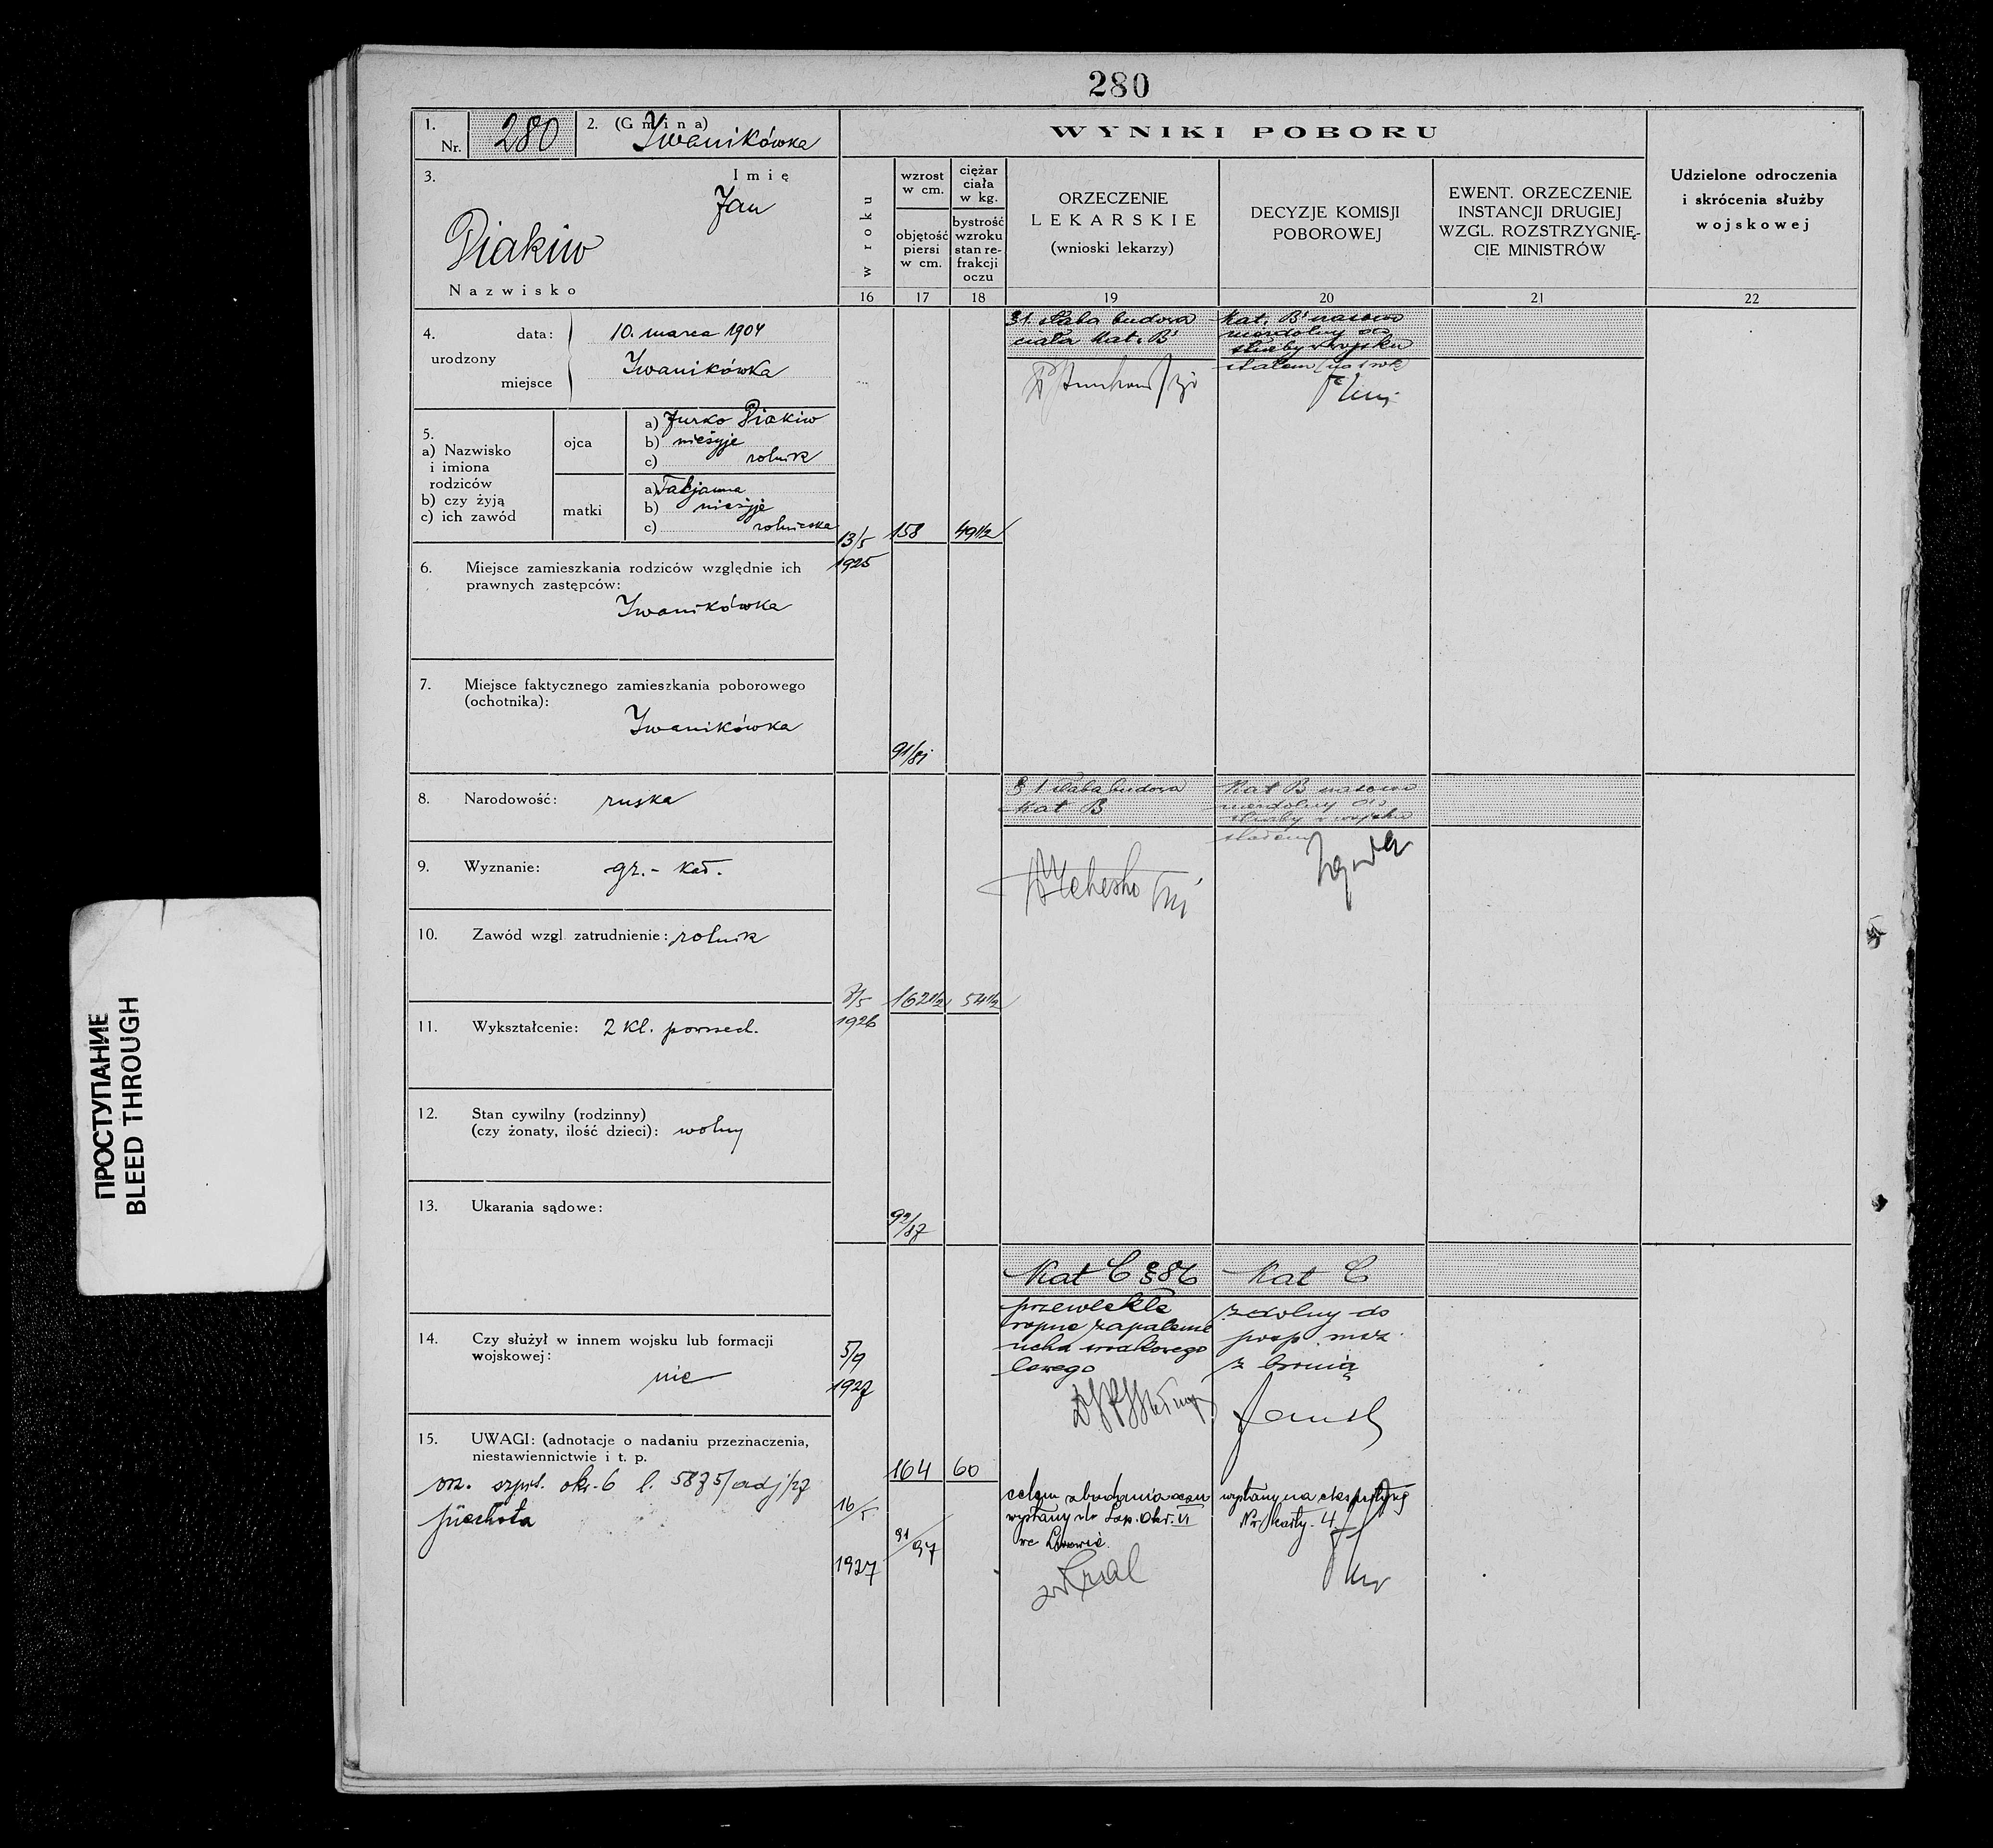 280
1.
Nr. 280
2. (Gmina)
Iwanikówka
3.
Imię
Jan
Diakiw
Nazwisko
4.
urodzony
data: 10. marca 1904
miejsce Iwanikówka
5.
a) Nazwisko
i imiona
rodziców
b) czy żyją
c) ich zawód
ojca
a) Jurko Diakiw
b) nieżyje
c) rolnik
matki
a) Tatjanna
b) nieżyje
c) rolniczka
6. Miejsce zamieszkania rodziców względnie ich
prawnych zastępców:
Iwanikówka
7. Miejsce faktycznego zamieszkania poborowego
(ochotnika):
Iwanikówka
8. Narodowość: ruska
9. Wyznanie: gr.-kat.
10. Zawód wzgl. zatrudnienie: rolnik
11. Wykształcenie: 2 kl. powszech.
12. Stan cywilny (rodzinny)
(czy żonaty, ilość dzieci): wolny
13. Ukarania sądowe:
14. Czy służył w innem wojsku lub formacji
wojskowej:
nie
15. UWAGI: (adnotacje o nadaniu przeznaczenia,
niestawiennictwie i t. p.
okr. 6 l. 5875/adj/27
piechota
WYNIKI POBORU
w roku
16
wzrost
w cm.
objętość
piersi
w cm.
17
ciężar
ciała
w kg.
bystrość
wzroku
stan re-
frakcji
oczu
18
ORZECZENIE
LEKARSKIE
(wnioski lekarzy)
19
DECYZJE KOMISJI
POBOROWEJ
20
EWENT. ORZECZENIE
INSTANCJI DRUGIEJ
WZGL. ROZSTRZYGNIĘ-
CIE MINISTRÓW
21
Udzielone odroczenia
i skrócenia służby
wojskowej
22
13/5
1925
158
49 1/2
91/81
§1. słaba budowa
ciała Kat. B
Kat. B czasowo
niezdolny do
służby w wojsku
stałem
7/5
1926
162 1/2
54 1/2
92/87
§ 1 słaba budowa
Kat B
Kat B czasowo
niezdolny do
służby w wojsku
stałem
5/9
1927
Kat C § 86
przewlekłe
ropne zapalenie
ucha środkowego
lewego
Kat C
zdolny do
posp. rusz.
z bronią
16/5
1927
164
60
91/97
celem zbadania oczu
wysłany do Szp. Okr. VI
we Lwowie.
wysłany na ekspertyzę
Nr. karty. 4
ПРОСТУПАНИЕ
BLEED THROUGH